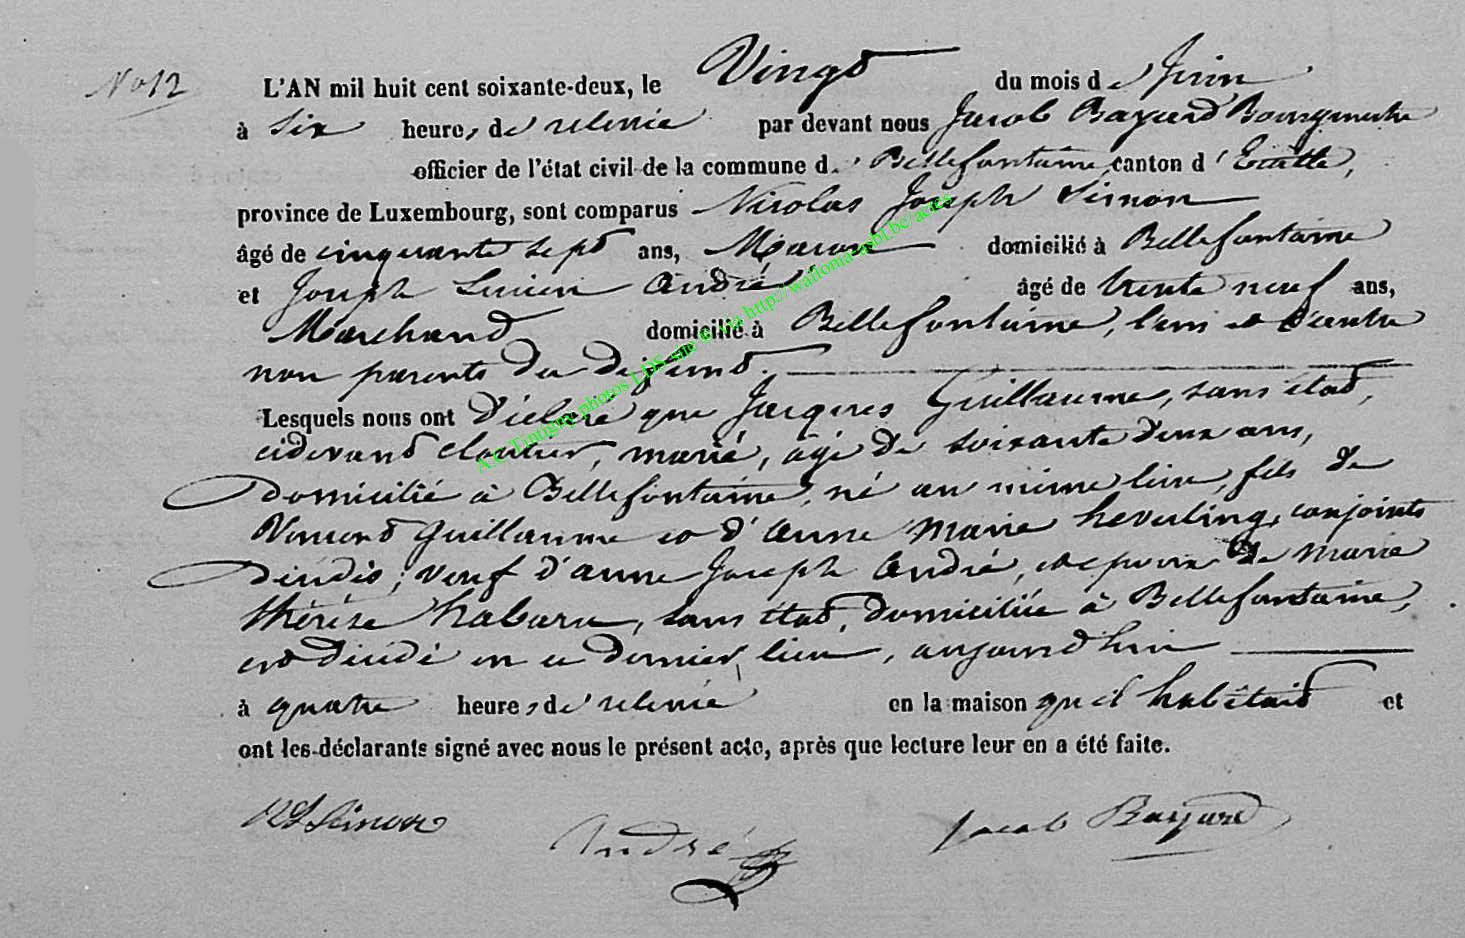 No 12
L'AN mil huit cent soixante-deux, le Vingt du mois de Juin
à Six heures de relevée par devant nous Jacob Bayard Bourgmestre
officier de l'état civil de la commune de Bellefontaine, canton d'Etalle,
province de Luxembourg, sont comparus Nicolas Joseph Simon
âgé de cinquante sept ans, Maçon domicilié à Bellefontaine
et Joseph Lucien André âgé de trente neuf ans,
Marchand domicilié à Bellefontaine, l'un et l'autre
non parents du défunt.
Lesquels nous ont Déclaré que Jacques Guillaume, sans état,
cidevant cloutier, marié, âgé de soixante deux ans,
domicilié à Bellefontaine, né au même lieu, fils de
Vincent Guillaume et d'Anne Marie heverling, conjoints
décédés, veuf d'anne Joseph André, et époux de Marie
thérèse habaru, sans état, domiciliée à Bellefontaine,
est décédé en ce dernier lieu, aujourd'hui
à quatre heures de relevée en la maison qu'il habitait et
ont les déclarants signé avec nous le présent acte, après que lecture leur en a été faite.
NJ Simon André Jacob Bayard
A.C. Tintigny photos LDS site via http://walloma asbl.be/actes